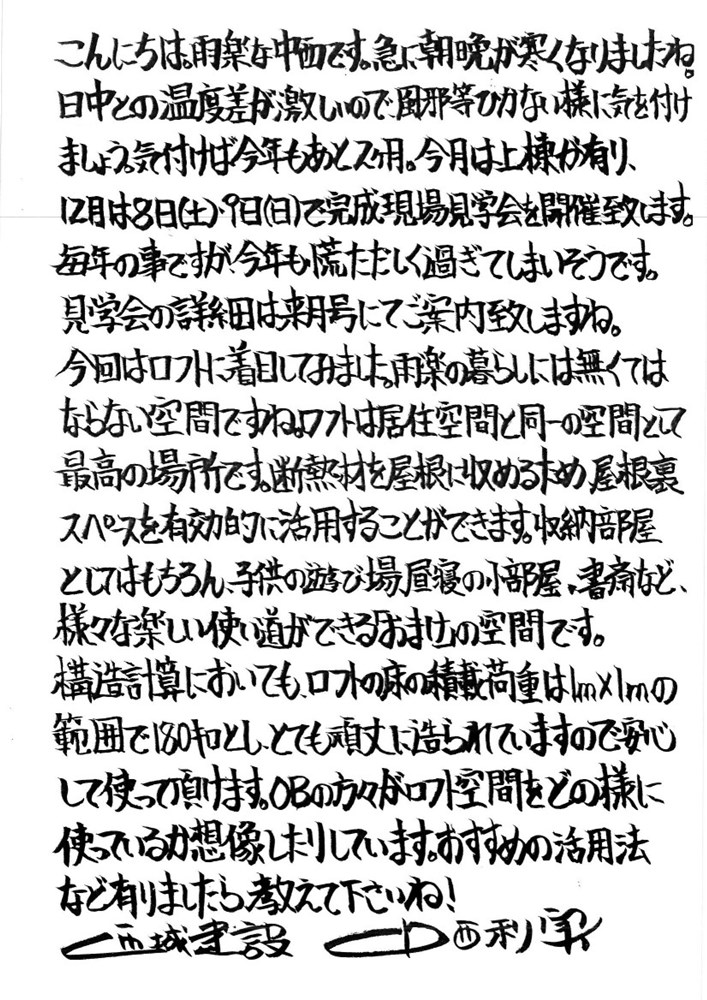 こんにちは。雨楽な中西です。急に朝晩が寒くなりましたね。
日中との温度差が激しいので、風邪等ひかない様に気を付け
ましょう。気付けば今年もあと2ヶ月。今月は上棟が有り、
12月は8日(土)・9日(日)で完成現場見学会を開催致します。
毎年の事ですが、今年も慌ただしく過ぎてしまいそうです。
見学会の詳細は来月号にてご案内致しますね。
今回はロフトに着目してみました。雨楽の暮らしには無くては
ならない空間ですね。ロフトは居住空間と同一の空間として
最高の場所です。断熱材を屋根に収めるため、屋根裏
スペースを有効的に活用することができます。収納部屋
としてはもちろん、子供の遊び場、昼寝の小部屋、書斎など、
様々な楽しい使い道ができる「おまけ」の空間です。
構造計算においても、ロフトの床の積載荷重は1m×1mの
範囲で180キロとし、とても頑丈に造られていますので安心
して使って頂けます。OBの方々がロフト空間をどの様に
使っているか想像したりしています。おすすめの活用法
など有りましたら、教えて下さいね!
西城建設 中西利